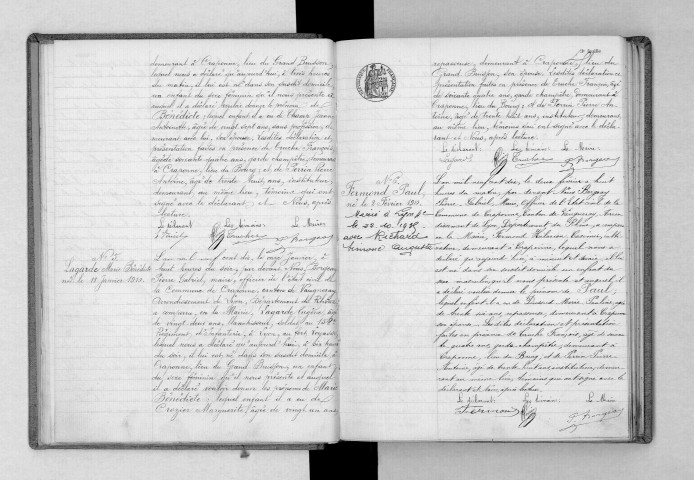 demeurant à Craponne, lieu du Grand Buisson,
lequel nous a déclaré qu'aujourd'hui, à trois heures
du matin, il lui est né dans son susdit domicile
un enfant du sexe féminin qu'il nous présente et
auquel il a déclaré vouloir donner le prénom de
Bénédicte, lequel enfant il a eu de
Antoinette, âgée de vingt sept ans, sans profession, de-
meurant avec lui, son épouse, lesdites déclaration et
présentation faites en présence de Cruche François,
âgé de soixante quatre ans, garde champêtre, demeurant
à Craponne, lieu du Bourg, et de Perrin Pierre
Antoine, âgé de trente huit ans, instituteur,
demeurant au même lieu, témoins qui ont
signé avec le déclarant, et Nous, après
lecture.
Le déclarant Les témoins Le Maire
N° 2
Lagarde Marie Bénédicte
né le 11 janvier 1910.
L'an mil neuf cent dix, le onze Janvier, à
huit heures du soir, par devant Nous,
Pierre Gabriel, maire, officier de l'état civil de
la Commune de Craponne, canton de Vaugneray
Arrondissement de Lyon, Département du Rhône,
a comparu, en la Mairie, Lagarde Eugène, âgé
de vingt deux ans, blanchisseur, soldat au
Régiment d'Infanterie, à Lyon, au fort
lequel nous a déclaré qu'aujourd'hui, à
du soir, il lui est né dans son susdit domicile, à
Craponne, lieu du Grand Buisson, un enfant
du sexe féminin qu'il nous présente et auquel
il a déclaré vouloir donner les prénoms de Marie
Bénédicte, lequel enfant il a eu de
Crozier Marguerite, âgée de vingt un ans,
repasseuse, demeurant à Craponne, lieu du
Grand Buisson, son épouse, lesdites déclaration et
présentation faites en présence de Cruche François, âgé
de soixante quatre ans, garde champêtre, demeurant à
Craponne, lieu du Bourg, et de Perrin Pierre An-
toine, âgé de trente huit ans, instituteur, demeurant
au même lieu, témoins qui ont signé avec le décla-
rant et Nous, après lecture.
Le déclarant Les témoins Le Maire
N° 3
Fermond Paul,
né le 2 Février 1910.
Marié à Lyon
le 22.10.1938
avec Richard
Simone Augusta
L'an mil neuf cent dix, le deux février, à huit
heures du matin, par devant Nous
Pierre Gabriel, Maire, Officier de l'Etat civil de la
Commune de Craponne, Canton de Vaugneray, Arron-
dissement de Lyon, Département du Rhône, a comparu
en la Mairie, Fermond
demeurant à Craponne, lequel nous a
déclaré qu'aujourd'hui, à minuit et demi, il lui
est né dans son susdit domicile un enfant du
sexe masculin, qu'il nous présente et auquel il
a déclaré vouloir donner le prénom de Paul,
lequel enfant il a eu de Marie Pauline, âgée
de trente six ans, repasseuse, demeurant à Craponne
son épouse. Lesdites déclaration et présentation
faites en présence de Cruche François, âgé de soixante
quatre ans, garde champêtre, demeurant à
Craponne, lieu du Bourg, et de Perrin Pierre
Antoine, âgé de trente huit ans, instituteur, demeu-
rant au même lieu, témoins qui ont signé avec le
déclarant et Nous, après lecture.
Le déclarant Les témoins Le Maire
Fermond